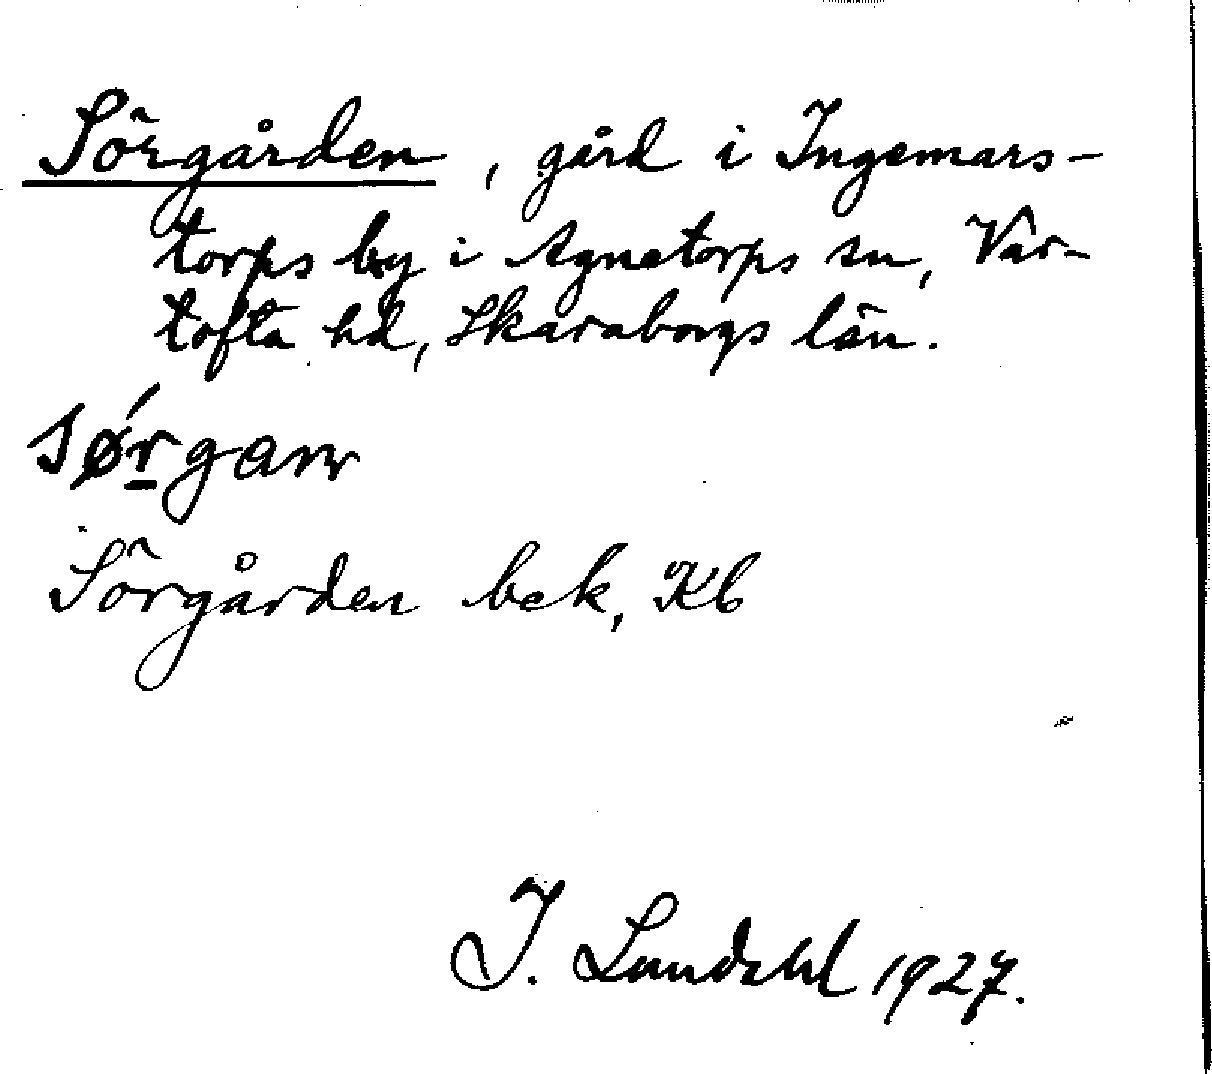 Sörgården, gård i Ingemars-
torps by i Agnetorps sn, Var-
tofta hd, Skaraborgs län.
sǿr̲garn
Sörgården bek, Kb
I. Lundahl 1927.